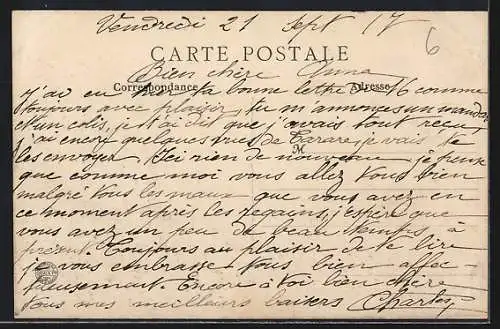 Vendredi 21 Sept 17
6
CARTE POSTALE
Bien chère Anna
Correspondance Adresse
J'ai eu hier ta bonne lettre du 16 comme
toujours avec plaisir, tu m'annonces un mandat
et un colis, je t'ai dit que j'avais tout reçu
j'ai encore quelques vues de Tarare, je vais te
M
les envoyer. Ici rien de nouveau je pense
que comme moi vous allez tous bien
malgré tous les maux que vous avez en
ce moment après les regains, j'espère que
vous avez un peu de beau temps à
présent. Toujours au plaisir de te lire
je vous embrasse tous bien affec
tueusement. Encore à toi bien chère
tous mes meilleurs baisers Charles